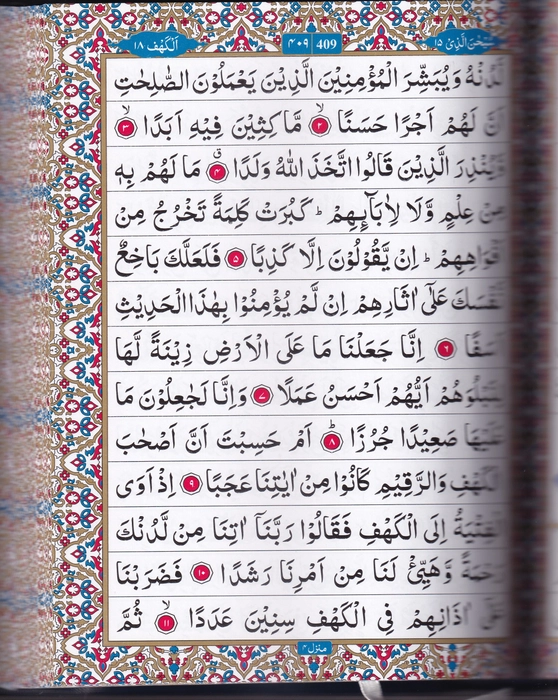 سُبْحٰنَ الَّذِیْ ۱۵ 409 ۴۰۹ اَلْكَهْف ۱۸
لَّدُنْهُ وَيُبَشِّرَ الْمُؤْمِنِيْنَ الَّذِيْنَ يَعْمَلُوْنَ الصّٰلِحٰتِ
لَهُمْ اَجْرًا حَسَنًا ۙ﴿۲﴾ مَّاكِثِيْنَ فِيْهِ اَبَدًا ۙ﴿۳﴾
وَّيُنْذِرَ الَّذِيْنَ قَالُوا اتَّخَذَ اللّٰهُ وَلَدًا ۗ﴿۴﴾ مَا لَهُمْ بِهٖ
مِنْ عِلْمٍ وَّلَا لِاٰبَآىِٕهِمْ ؕ كَبُرَتْ كَلِمَةً تَخْرُجُ مِنْ
اَفْوَاهِهِمْ ؕ اِنْ يَّقُوْلُوْنَ اِلَّا كَذِبًا ﴿۵﴾ فَلَعَلَّكَ بَاخِعٌ
نَّفْسَكَ عَلٰٓى اٰثَارِهِمْ اِنْ لَّمْ يُؤْمِنُوْا بِهٰذَا الْحَدِيْثِ
اَسَفًا ﴿۶﴾ اِنَّا جَعَلْنَا مَا عَلَى الْاَرْضِ زِيْنَةً لَّهَا
لِنَبْلُوَهُمْ اَيُّهُمْ اَحْسَنُ عَمَلًا ﴿۷﴾ وَاِنَّا لَجٰعِلُوْنَ مَا
عَلَيْهَا صَعِيْدًا جُرُزًا ؕ﴿۸﴾ اَمْ حَسِبْتَ اَنَّ اَصْحٰبَ
الْكَهْفِ وَالرَّقِيْمِ كَانُوْا مِنْ اٰيٰتِنَا عَجَبًا ﴿۹﴾ اِذْ اَوَى
الْفِتْيَةُ اِلَى الْكَهْفِ فَقَالُوْا رَبَّنَاۤ اٰتِنَا مِنْ لَّدُنْكَ
رَحْمَةً وَّهَيِّئْ لَنَا مِنْ اَمْرِنَا رَشَدًا ﴿۱۰﴾ فَضَرَبْنَا
اٰذَانِهِمْ فِى الْكَهْفِ سِنِيْنَ عَدَدًا ۙ﴿۱۱﴾ ثُمَّ
منزل ۴